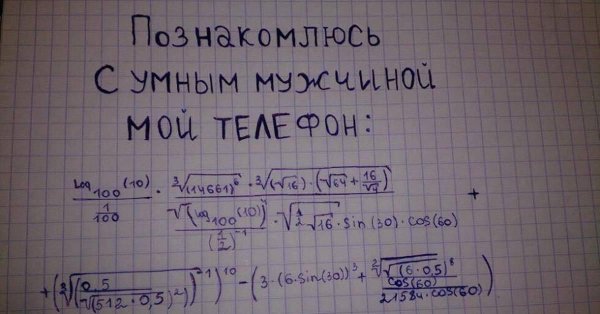 Познакомлюсь
с умным мужчиной
мой телефон:
log₁₀₀(10) / (1/100) · ∛(14661)⁶ · ∛(√16) · (√64 + 16/√4) / (√(log₁₀₀(10)) / (1/2)⁻¹ · √(1/2 √16) · sin(30) · cos(60)) +
+ (∛(0,5 / √(512 · 0,5)²)⁻¹)¹⁰ − (3 · (6 · sin(30))³ + ∛(√(6 · 0,5)⁸ / cos(60)) / 21584 · cos(60))